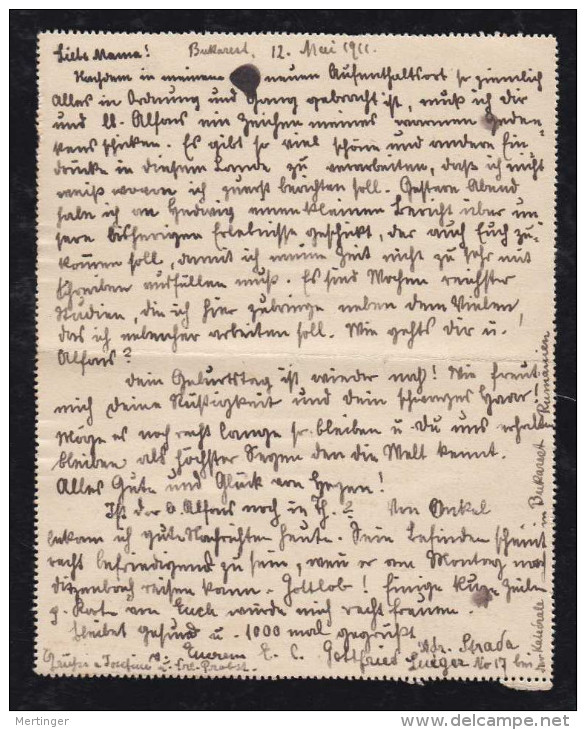 Liebe Mama! Bukarest, 12. Mai 1911.
Nachdem in meinem neuen Aufenthaltsort so ziemlich
Alles in Ordnung und Gang gebracht ist, muß ich Dir
und Alfons ein Zeichen meines warmen Geden-
kens schicken. Es gibt so viel schöne und andere Ein-
drücke in diesem Lande zu verarbeiten, daß ich nicht
weiß wovon ich zuerst berichten soll. Gestern Abend
habe ich an Hedwig einen kleinen Bericht über un-
sere bisherigen Erlebnisse geschickt, der auch Euch zu-
kommen soll, damit ich meine Zeit nicht zu sehr mit
Schreiben ausfüllen muß. Es sind Wochen reichster
Studien, die ich hier zubringe neben dem Vielen,
das ich nebenher arbeiten soll. Wie gehts Dir u.
Alfons?
Dein Geburtstag ist wieder nah! Wie freut
mich Deine Rüstigkeit und Dein schwarzes Haar
Möge es noch recht lange so bleiben u. Du uns erhalten
bleiben als höchster Segen den die Welt kennt.
Alles Gute und Glück von Herzen!
Ist der Alfons noch in Th.? Von Onkel
bekam ich gute Nachrichten heute. Sein Befinden scheint
recht befriedigend zu sein, weil er am Montag nach
Ditzenbach reisen kann. Gottlob! Einige kurze Zeilen
p. Karte von Euch würde mich recht freuen.
Bleibet gesund u. 1000 mal gegrüßt
v. Eurem Gottfried
Grüße a. Josefine u. Frl. Probst.
Adr. Strada
No 17 bei
der Katedrale in Bukarest Rumänien
Mertinger
http://www.delcampe.net